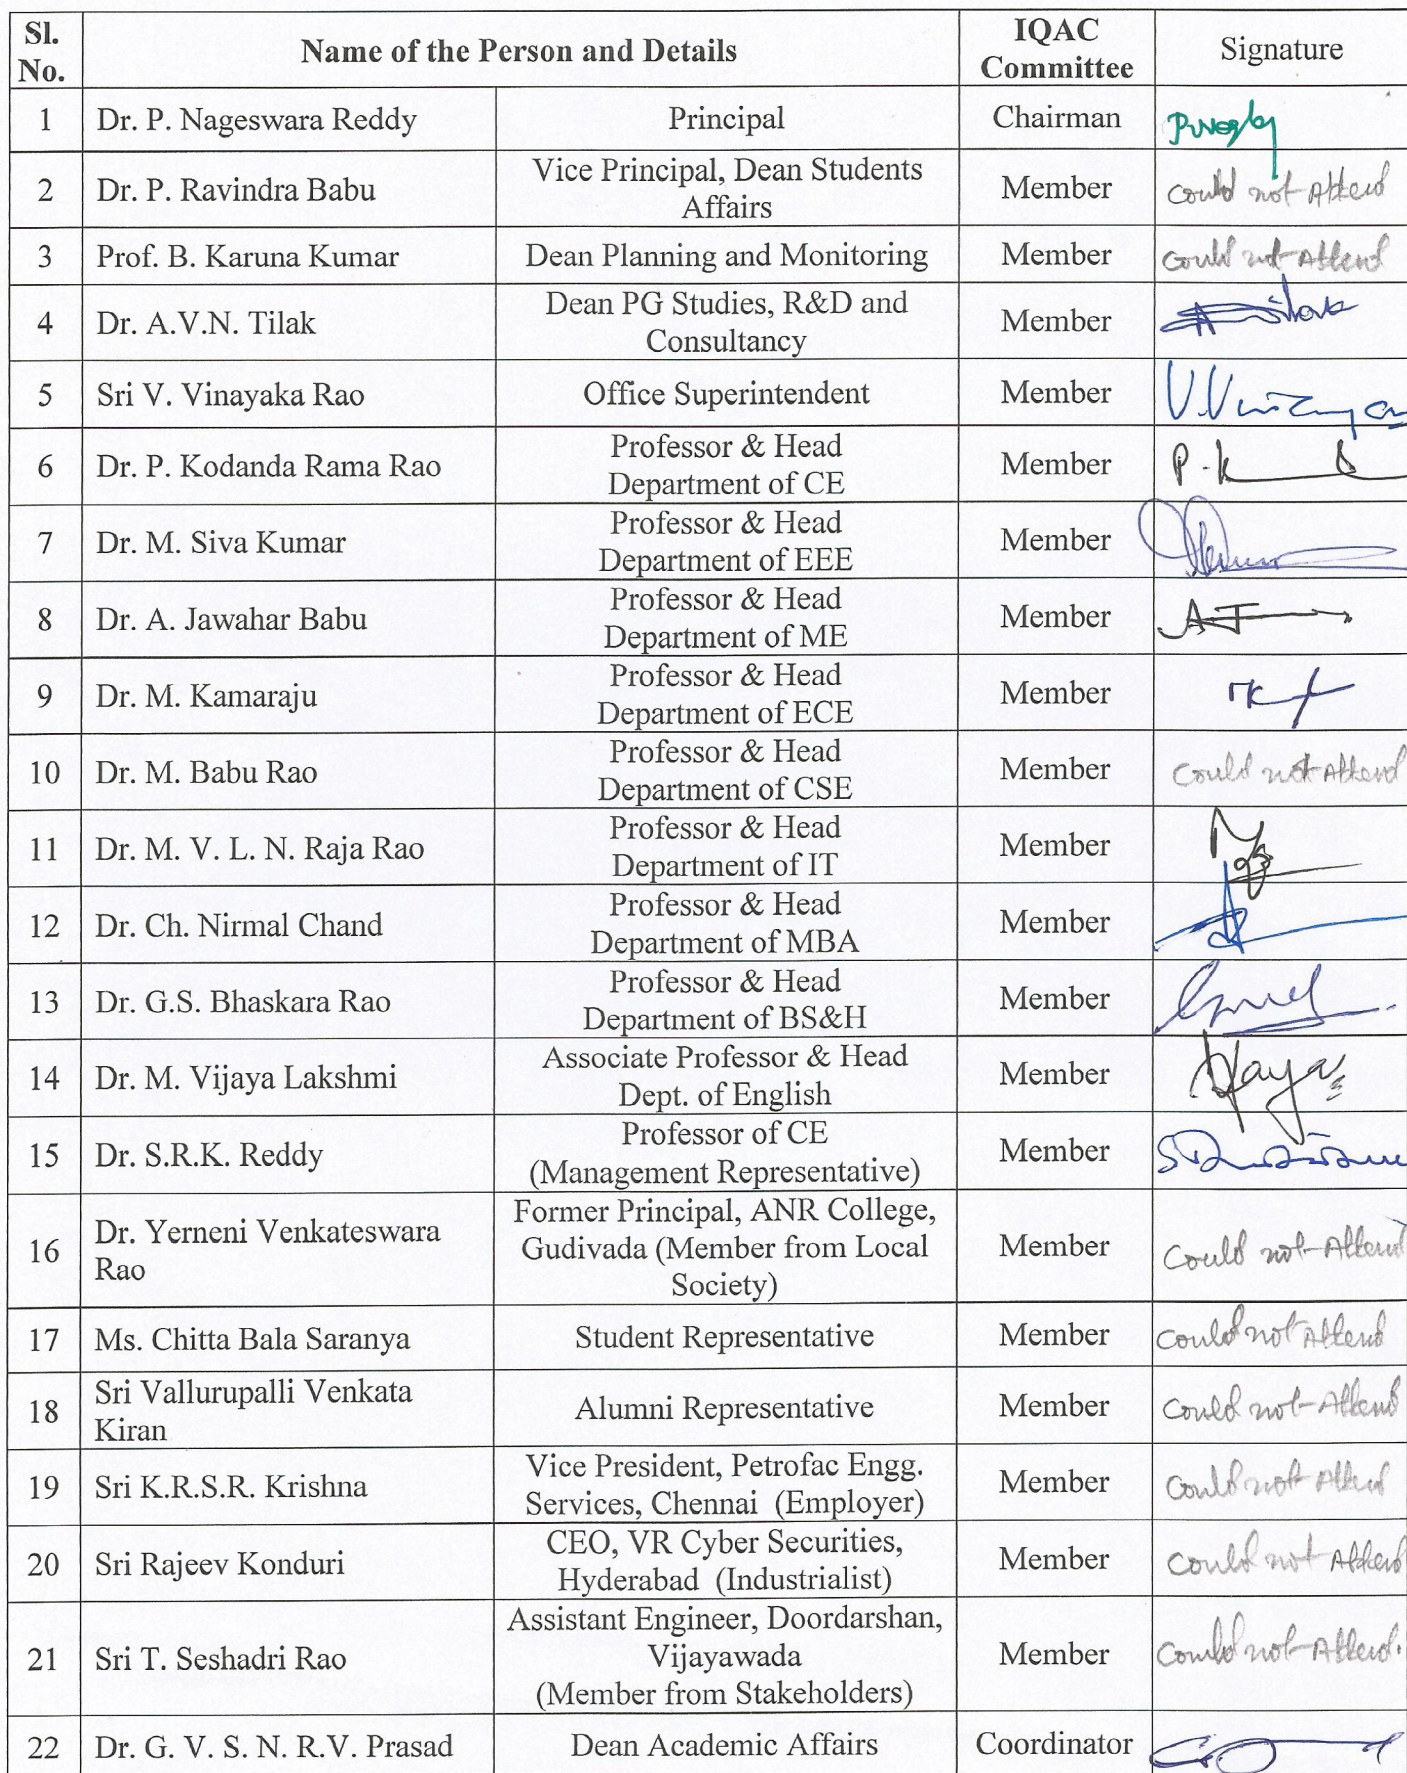 Sl. No. Name of the Person and Details IQAC Committee Signature
1 Dr. P. Nageswara Reddy Principal Chairman
2 Dr. P. Ravindra Babu Vice Principal, Dean Students Affairs Member Could not Attend
3 Prof. B. Karuna Kumar Dean Planning and Monitoring Member Could not Attend
4 Dr. A.V.N. Tilak Dean PG Studies, R&D and Consultancy Member
5 Sri V. Vinayaka Rao Office Superintendent Member
6 Dr. P. Kodanda Rama Rao Professor & Head Department of CE Member
7 Dr. M. Siva Kumar Professor & Head Department of EEE Member
8 Dr. A. Jawahar Babu Professor & Head Department of ME Member
9 Dr. M. Kamaraju Professor & Head Department of ECE Member
10 Dr. M. Babu Rao Professor & Head Department of CSE Member Could not Attend
11 Dr. M. V. L. N. Raja Rao Professor & Head Department of IT Member
12 Dr. Ch. Nirmal Chand Professor & Head Department of MBA Member
13 Dr. G.S. Bhaskara Rao Professor & Head Department of BS&H Member
14 Dr. M. Vijaya Lakshmi Associate Professor & Head Dept. of English Member
15 Dr. S.R.K. Reddy Professor of CE (Management Representative) Member
16 Dr. Yerneni Venkateswara Rao Former Principal, ANR College, Gudivada (Member from Local Society) Member Could not Attend
17 Ms. Chitta Bala Saranya Student Representative Member Could not Attend
18 Sri Vallurupalli Venkata Kiran Alumni Representative Member Could not Attend
19 Sri K.R.S.R. Krishna Vice President, Petrofac Engg. Services, Chennai (Employer) Member Could not Attend
20 Sri Rajeev Konduri CEO, VR Cyber Securities, Hyderabad (Industrialist) Member Could not Attend
21 Sri T. Seshadri Rao Assistant Engineer, Doordarshan, Vijayawada (Member from Stakeholders) Member Could not Attend.
22 Dr. G. V. S. N. R.V. Prasad Dean Academic Affairs Coordinator